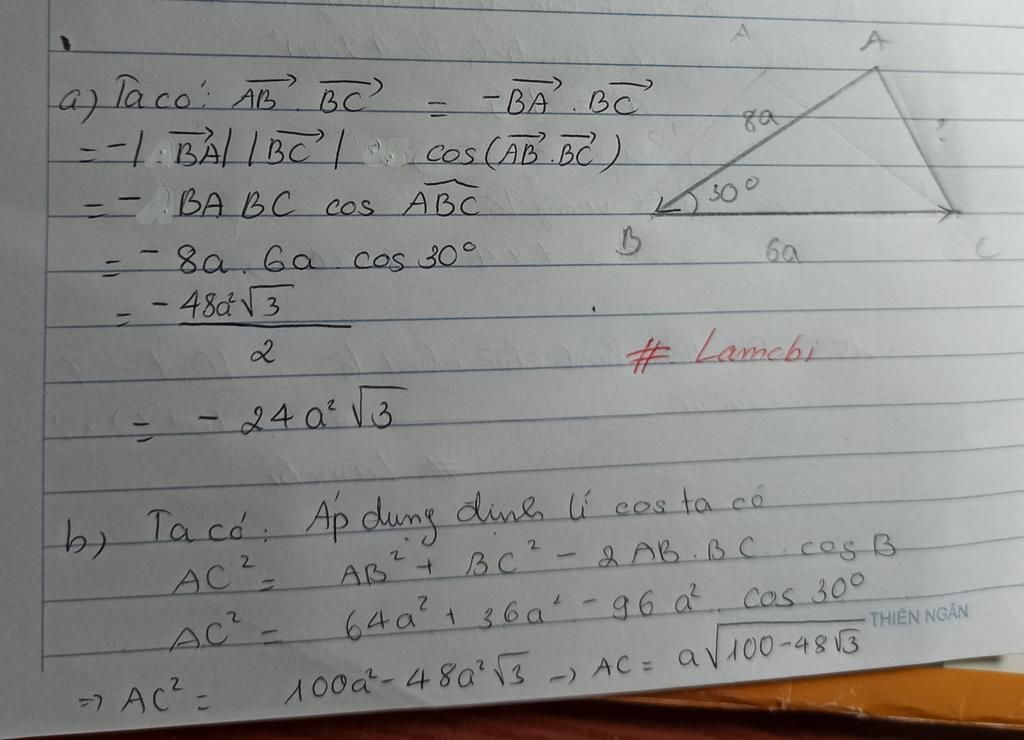 A
A
a) Ta có: $\overrightarrow{AB} . \overrightarrow{BC} = -\overrightarrow{BA} . \overrightarrow{BC}$
8a
?
$= -|.\overrightarrow{BA}| |\overrightarrow{BC}| \cos(\overrightarrow{AB}.\overrightarrow{BC})$
$= - BA BC \cos \widehat{ABC}$
30°
B
6a
C
$= - 8a . 6a . \cos 30°$
$= \frac{-48a^2\sqrt{3}}{2}$
# Lamchi
$= -24a^2\sqrt{3}$
b) Ta có: Áp dung dinh lí cos ta có
$AC^2 = AB^2 + BC^2 - 2AB.BC . \cos B$
$AC^2 = 64a^2 + 36a^2 - 96a^2 . \cos 30°$
THIÊN NGÂN
$\Rightarrow AC^2 = 100a^2 - 48a^2\sqrt{3} \rightarrow AC = a\sqrt{100 - 48\sqrt{3}}$